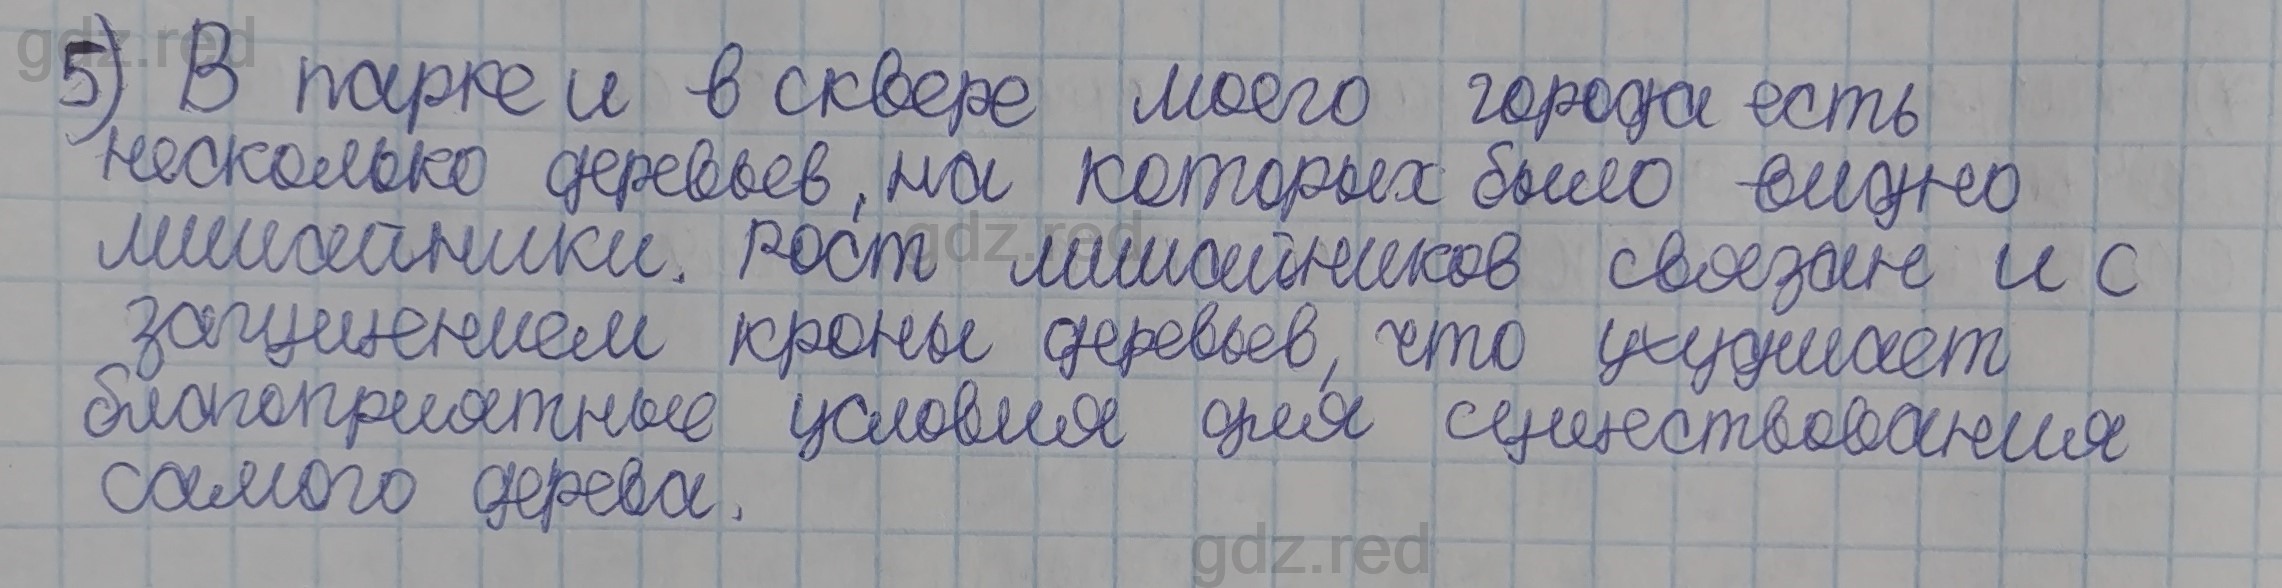 gdz.red
5) В парке и в сквере моего города есть
несколько деревьев, на которых было видно
лишайники. Рост лишайников связан и с
gdz.red
загущением кроны деревьев, что ухудшает
благоприятные условия для существования
самого дерева.
gdz.red